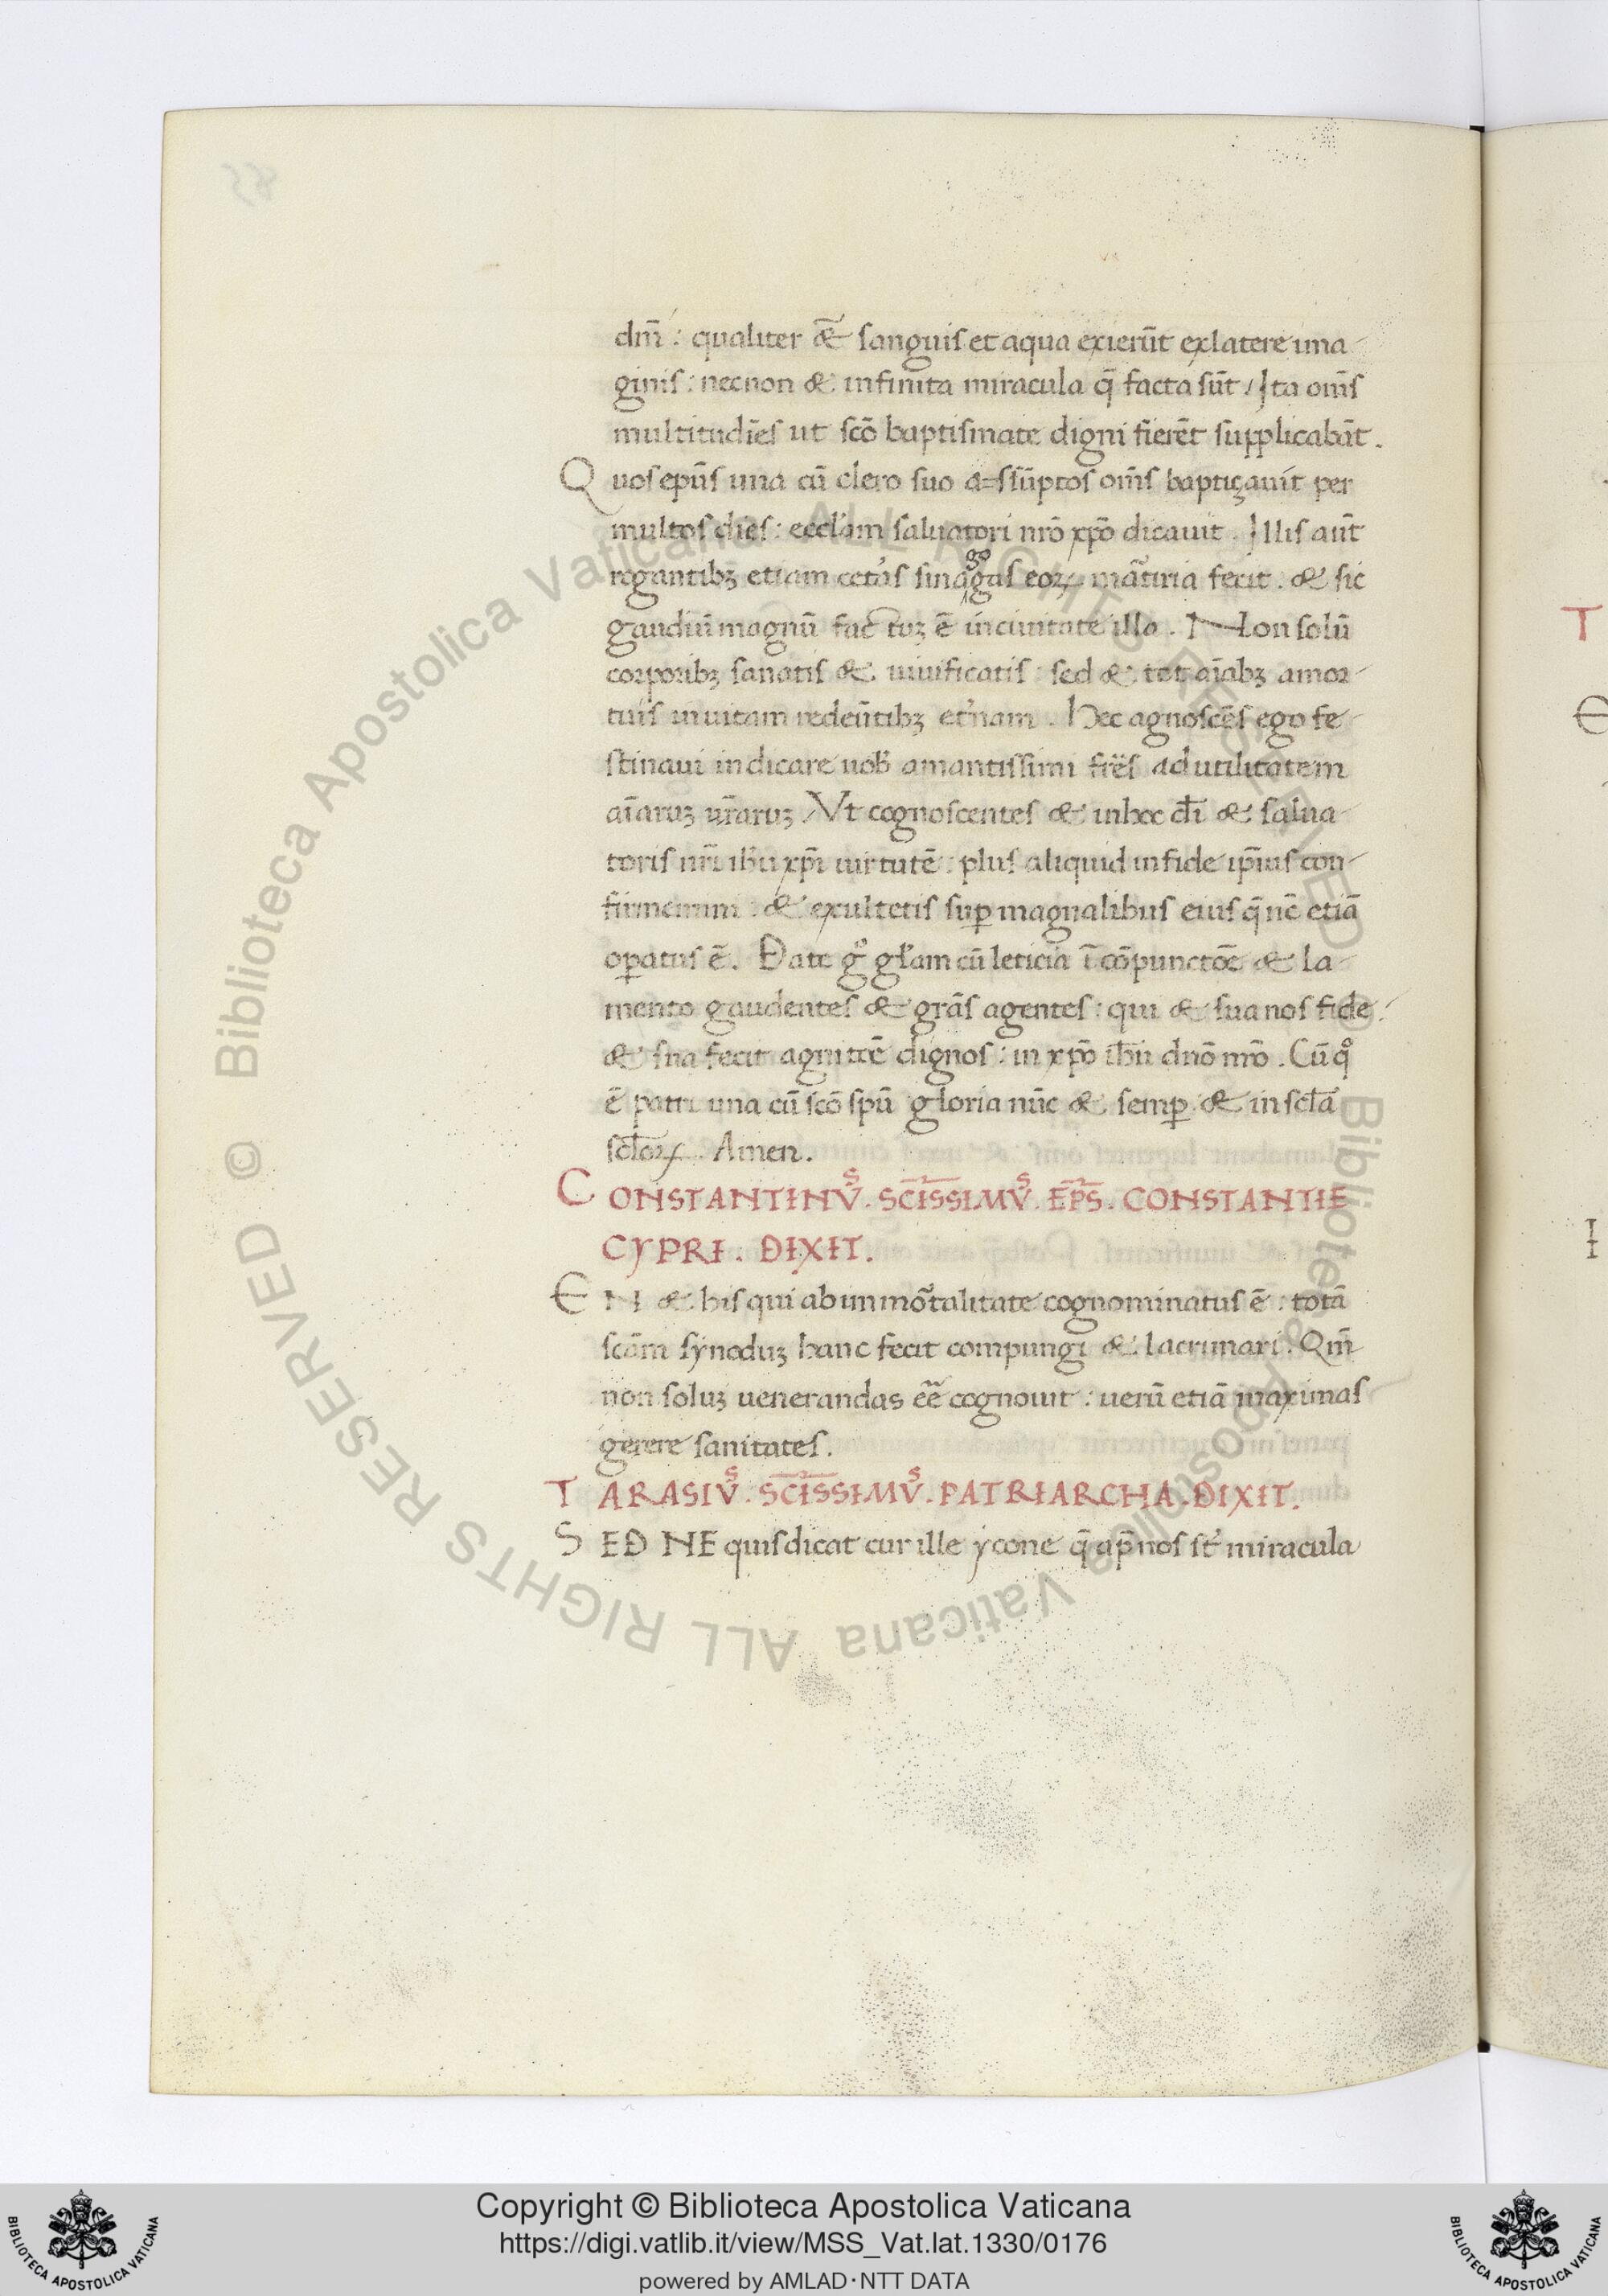 dm̄ : qualiter &̄ sanguis et aqua exierūt ex latere ima
ginis : necnon & infinita miracula q̄ facta sūt / Ita om̄s
multitudīes ut scō baptismate digni fierēt supplicabāt .
Quos ep̄us una cū clero suo a=ssūptos om̄s baptiçauit per
multos dies : eccl'am saluatori nrō xp̄o dicauit . Illis aūt
rogantibꝫ etiam cet'as sinagogas eoꝝ mar̄tiria fecit . & sic
gaudiū magnū factuꝫ ē in ciuitate illa . Non solū
corporibꝫ sanatis & uiuificatis : sed & tot aīabꝫ a mor
tuis in uitam redeūtibꝫ et'nam . Hec agnoscēs ego fe
stinaui indicare uob' amantissimi frēs ad utilitatem
aīaruꝫ ur̄aruꝫ Vt cognoscentes & in hoc dī & salua
toris nrī ih̄u xp̄i uirtutē : plus aliquid in fide ip̄ius con
firmemini : & exultetis suꝑ magnalibus eius q̄ nc̄ etiā
oꝑatus ē . Date gº gl'am cū leticia ī cōpunctōe & la
mento gaudentes & grās agentes : qui & sua nos fide
& sua fecit agnitōe dignos : in xp̄o ih̄u dnō nrō . Cū qº
ē patri una cū scō spū gloria nūc & semꝑ & in scl̄a
scl̄oꝝ . Amen .
CONSTANTINVˢ . SC̄ISSIMVˢ . EP̄S . CONSTANTIE
CYPRI . DIXIT .
EN & his qui ab immor̄talitate cognominatus ē : totā
scām synoduꝫ hanc fecit compungi & lacrimari . Qm̄
non soluꝫ uenerandas eē cognouit : uerū etiā maximas
gerere sanitates .
TARASIVˢ . SC̄ISSIMVˢ . PATRIARCHA . DIXIT .
SED NE quis dicat cur ille ycone q̄ ap̄ nos st' miracula
T
E
I
ALL RIGHTS RESERVED © Biblioteca Apostolica Vaticana
Copyright © Biblioteca Apostolica Vaticana
https://digi.vatlib.it/view/MSS_Vat.lat.1330/0176
powered by AMLAD·NTT DATA
BIBLIOTECA APOSTOLICA VATICANA
BIBLIOTECA APOSTOLICA VATICANA